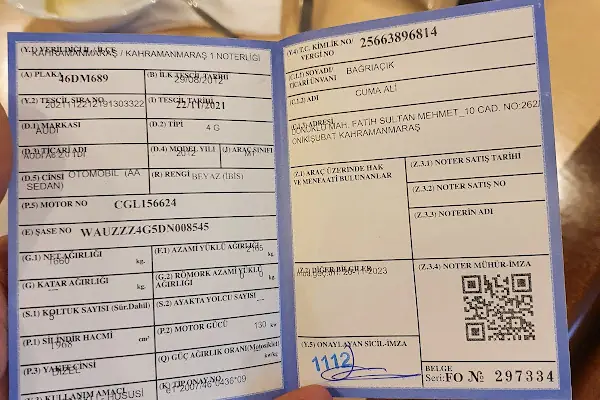 (Y.1) VERİLDİĞİ İL İLÇE
KAHRAMANMARAŞ / KAHRAMANMARAŞ 1 NOTERLİĞİ
(A) PLAKA 46DM689
(B) İLK TESCİL TARİHİ 29/08/2012
(Y.2) TESCİL SIRA NO
(I) TESCİL TARİHİ 22/11/2021
(D.1) MARKASI AUDI
(D.2) TİPİ 4 G
(D.3) TİCARİ ADI
(D.4) MODEL YILI 2012
(J) ARAÇ SINIFI M1
(D.5) CİNSİ OTOMOBİL (AA SEDAN)
(R) RENGİ BEYAZ (İBİS)
(P.5) MOTOR NO CGL156624
(E) ŞASE NO WAUZZZ4G5DN008545
(G.1) NET AĞIRLIĞI 1660 kg.
(F.1) AZAMİ YÜKLÜ AĞIRLIĞI kg.
(G) KATAR AĞIRLIĞI kg.
(G.2) RÖMORK AZAMİ YÜKLÜ AĞIRLIĞI kg.
(S.1) KOLTUK SAYISI (Sür.Dahil)
(S.2) AYAKTA YOLCU SAYISI
(P.1) SİLİNDİR HACMİ 1968 cm³
(P.2) MOTOR GÜCÜ 130 kw
(P.3) YAKIT CİNSİ DİZEL
(Q) GÜÇ AĞIRLIK ORANI (Motosiklet) kw/kg
KULLANIM AMACI HUSUSİ
(K) TİP ONAY NO
(Y.4) T.C. KİMLİK NO/ VERGİ NO 25663896814
(C.1.1) SOYADI/ TİCARİ ÜNVANI BAĞRIAÇIK
(C.1.2) ADI CUMA ALİ
(C.1.3) ADRESİ
MAH. FATİH SULTAN MEHMET_10 CAD. NO:262/
ONİKİŞUBAT KAHRAMANMARAŞ
(Z.1) ARAÇ ÜZERİNDE HAK VE MENFAATİ BULUNANLAR
(Z.3.1) NOTER SATIŞ TARİHİ
(Z.3.2) NOTER SATIŞ NO
(Z.3.3) NOTERİN ADI
(Z.2) DİĞER BİLGİLER
(Z.3.4) NOTER MÜHÜR-İMZA
(Y.5) ONAYLAYAN SİCİL-İMZA
1112
BELGE
Seri: FO № 297334